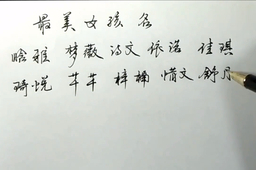 最美女孩名
晗雅 梦薇 诗文 依诺 佳琪
琦悦 芊芊 梓楠 惜文 舒月